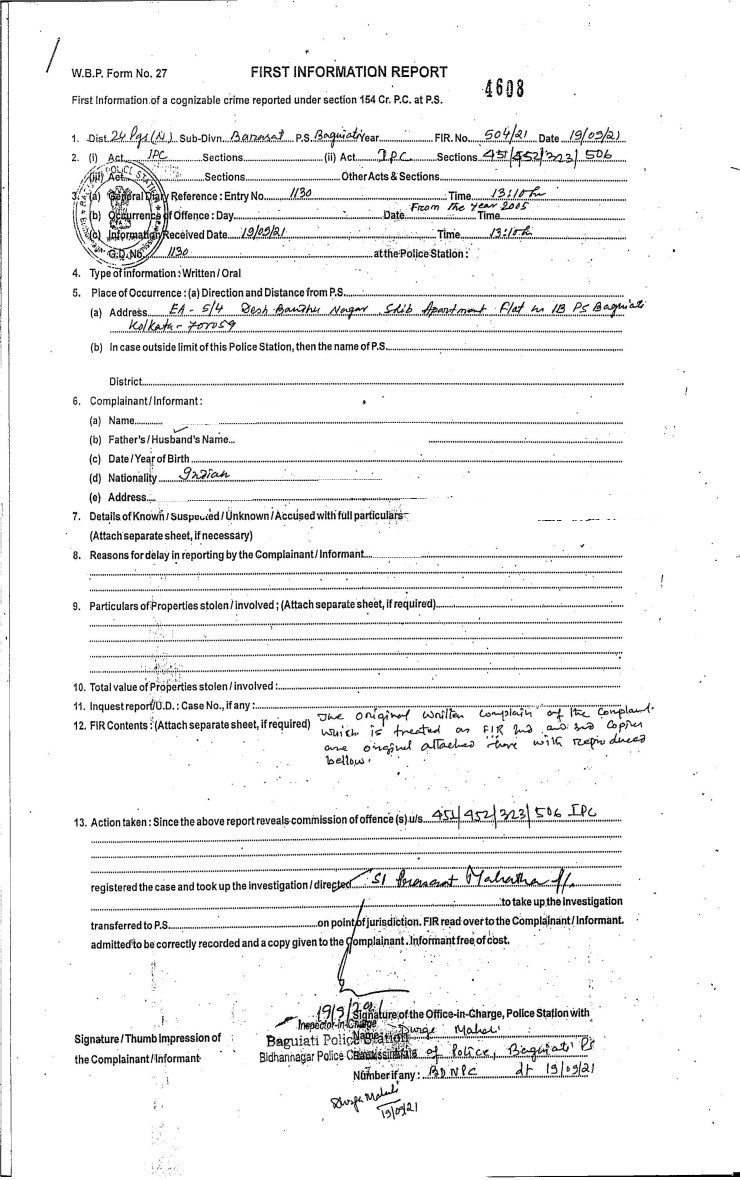 W.B.P. Form No. 27
FIRST INFORMATION REPORT
4608
First Information of a cognizable crime reported under section 154 Cr. P.C. at P.S.
1. Dist. 24 Pgs (N) Sub-Divn. Barasat P.S. Baguiati Year FIR. No. 504/21 Date 19/09/21
2. (i) Act IPC Sections (ii) Act IPC Sections 451/452/323/506
(iii) Act Sections Other Acts & Sections
3. (a) General Diary Reference : Entry No. 1130 Time 13:10 hr
(b) Occurrence of Offence : Day Date From the year 2005 Time
(c) Information Received Date 19/09/21 Time 13:10 h
G.D. No. 1130 at the Police Station :
4. Type of information : Written / Oral
5. Place of Occurrence : (a) Direction and Distance from P.S.
(a) Address EA - 5/4 Desh Bandhu Nagar Shib Apartment Flat no 1B PS Baguiati
Kolkata - 700059
(b) In case outside limit of this Police Station, then the name of P.S.
District
6. Complainant / Informant :
(a) Name
(b) Father's / Husband's Name
(c) Date / Year of Birth
(d) Nationality Indian
(e) Address
7. Details of Known / Suspected / Unknown / Accused with full particulars
(Attach separate sheet, if necessary)
8. Reasons for delay in reporting by the Complainant / Informant
9. Particulars of Properties stolen / involved ; (Attach separate sheet, if required)
10. Total value of Properties stolen / involved :
11. Inquest report / U.D. : Case No., if any :
12. FIR Contents : (Attach separate sheet, if required) The original written complain of the Complant.
which is treated as FIR 2nd and 3rd copies
are original attached here with reproduced
bellow.
13. Action taken : Since the above report reveals commission of offence (s) u/s 451/452/323/506 IPC
registered the case and took up the investigation / directed SI Mahatha
to take up the investigation
transferred to P.S. on point of jurisdiction. FIR read over to the Complainant / Informant.
admitted to be correctly recorded and a copy given to the Complainant. Informant free of cost.
19/9/2021 Signature of the Office-in-Charge, Police Station with
Inspector-in-Charge Name Durga Mahali
Signature / Thumb Impression of
Baguiati Police Station
the Complainant / Informant
Bidhannagar Police of Police, Baguiati PS
Number if any : BDNPC dt 19/09/21
Durga Mahali
19/09/21